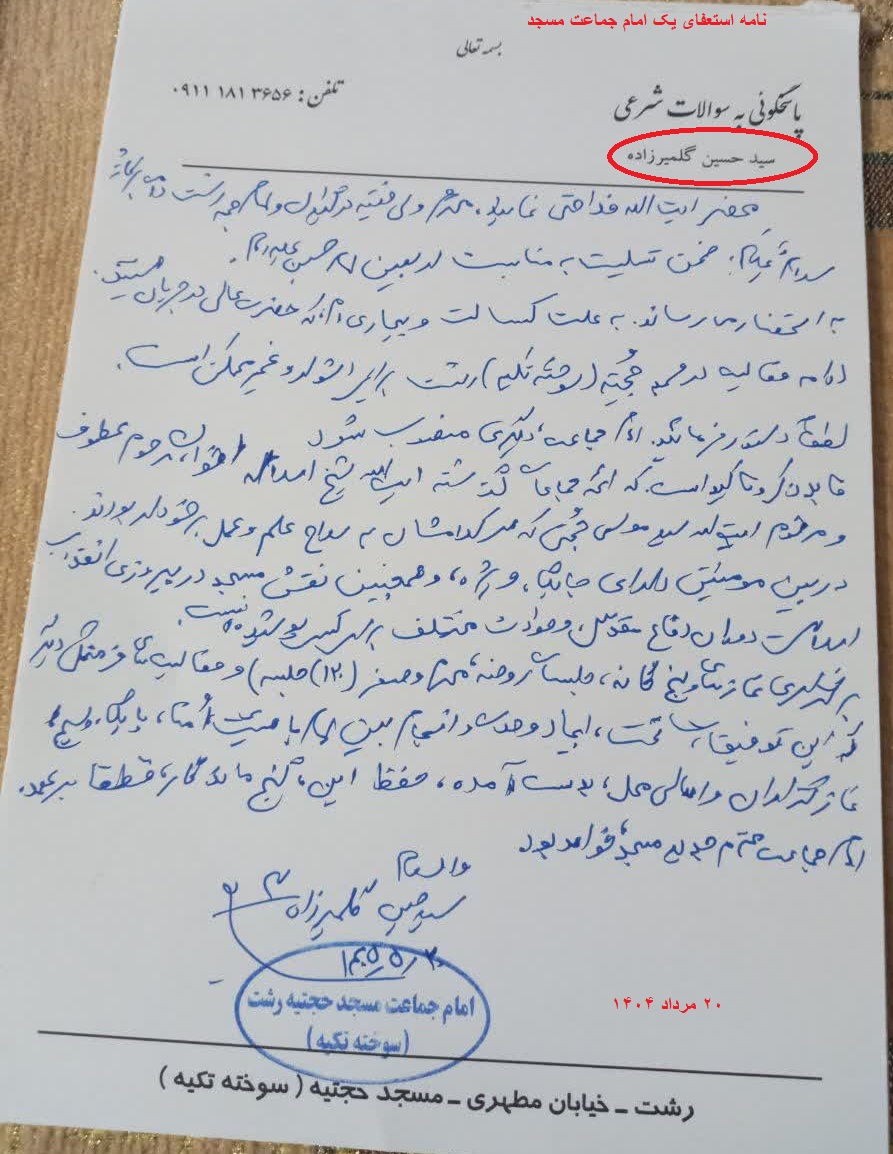 نامه استعفای یک امام جماعت مسجد
بسمه تعالی
پاسخگوئی به سوالات شرعی
تلفن: ۰۹۱۱ ۱۸۱ ۳۶۵۶
سید حسین گلمیرزاده
محضر ایت الله فلاحتی نماینده محترم ولی فقیه در گیلان و امام جمعه رشت
سلام علیکم. ضمن تسلیت به مناسبت اربعین امام حسین علیه السلام.
به استحضار می رساند. به علت کسالت و بیماری ام که حضرت عالی در جریان هستید.
ادامه فعالیت در مسجد حجتیه (سوخته تکیه) رشت برایم دشوار و غیر ممکن است.
لطفاً دستور فرمائید. امام جماعت دیگری منصوب شود
قابل ذکر و تاکید است. که ائمه جماعات گذشته ایت الله شیخ اخوان مرحوم عطوف
و مرحوم ایت الله سید موسی حجتی که هر کدامشان به سلاح علم و عمل برخوردار بودند.
در بین مومنین دارای جایگاه ویژه، و همچنین نقش مسجد در پیروزی انقلاب
اسلامی دوران دفاع مقدس، و حوادث مختلف برای کسی پوشیده نیست.
برگزاری نمازهای پنج گانه، جلسات روضه محرم و صفر (۱۲۰ جلسه) و فعالیت های فرهنگی دیگر
که این توفیقات تحت، ایجاد وحدت و انسجام بین امام با هیئت اُمنا، پایگاه بسیج،
نمازگذاران و اهالی محل، بدست آمده، حفظ این گنج ماندگار، قطعا بر عهده
امام جماعت محترم جدید مسجد خواهد بود.
والسلام
سید حسین گلمیرزاده
امام جماعت مسجد حجتیه رشت
(سوخته تکیه)
۲۰ مرداد ۱۴۰۴
رشت ـ خیابان مطهری ـ مسجد حجتیه (سوخته تکیه)